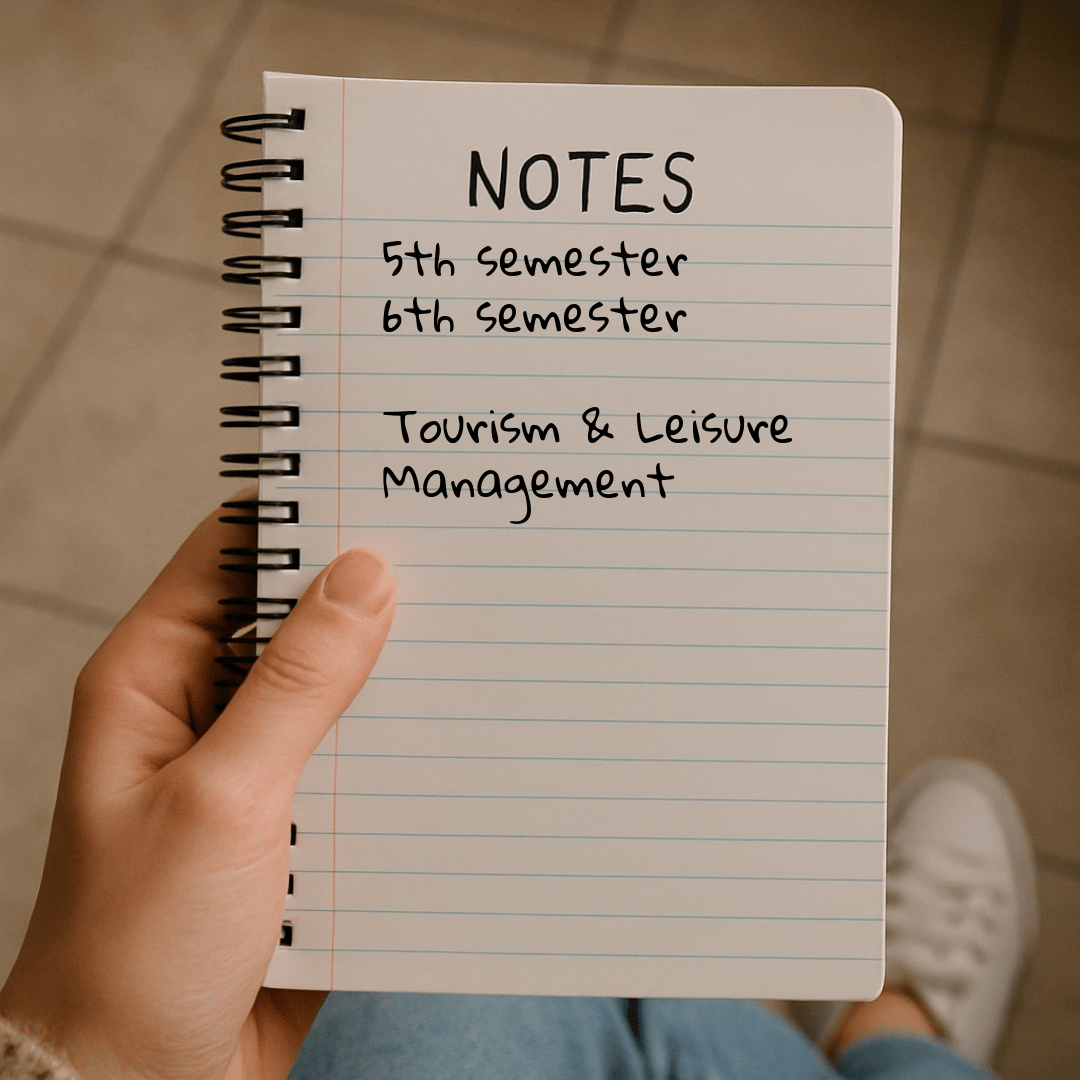 NOTES
5th semester
6th semester
Tourism & Leisure
Management